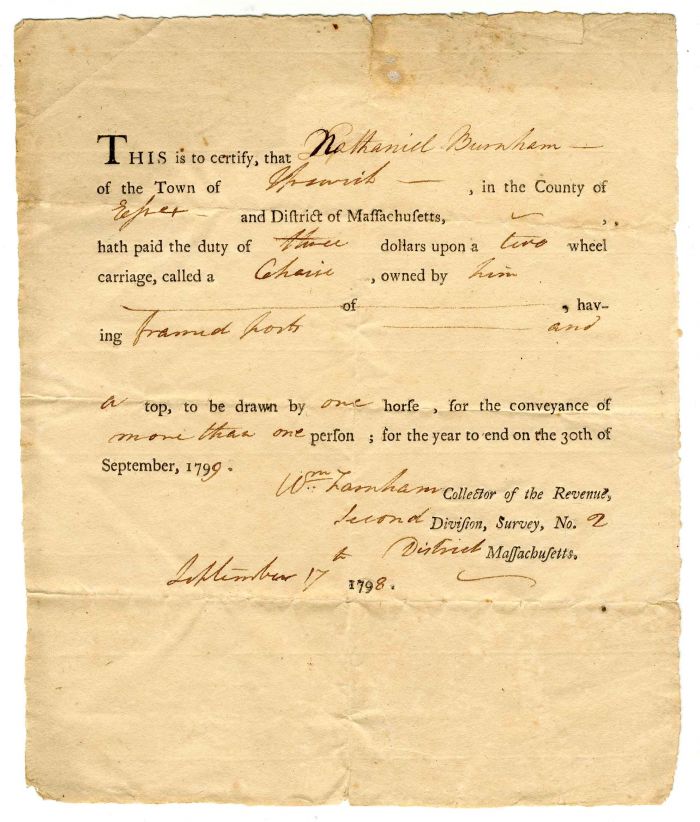 THIS is to certify, that Nathaniel Burnham —
of the Town of Ipswich — , in the County of
Essex — and District of Massachusetts, ,
hath paid the duty of three dollars upon a two wheel
carriage, called a Chaise , owned by him
of , hav-
ing framed posts and
a top, to be drawn by one horse , for the conveyance of
more than one person ; for the year to end on the 30th of
September, 1799.
Wm Farnham Collector of the Revenue,
Second Division, Survey, No. 2
District Massachusetts.
September 17th 1798.